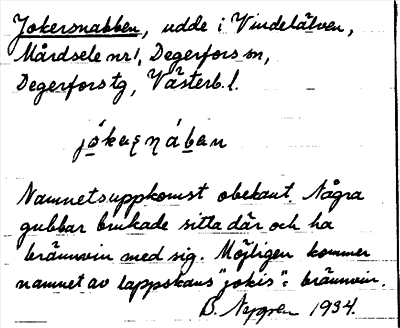 Jokersnabben, udde i Vindelälven,
Mårdsele nr 1, Degerfors sn,
Degerfors tg, Västerb. l.
Namnets uppkomst obekant. Några
gubbar brukade sitta där och ha
brännvin med sig. Möjligen kommer
namnet av lappskans "jokis" = brännvin.
1934.